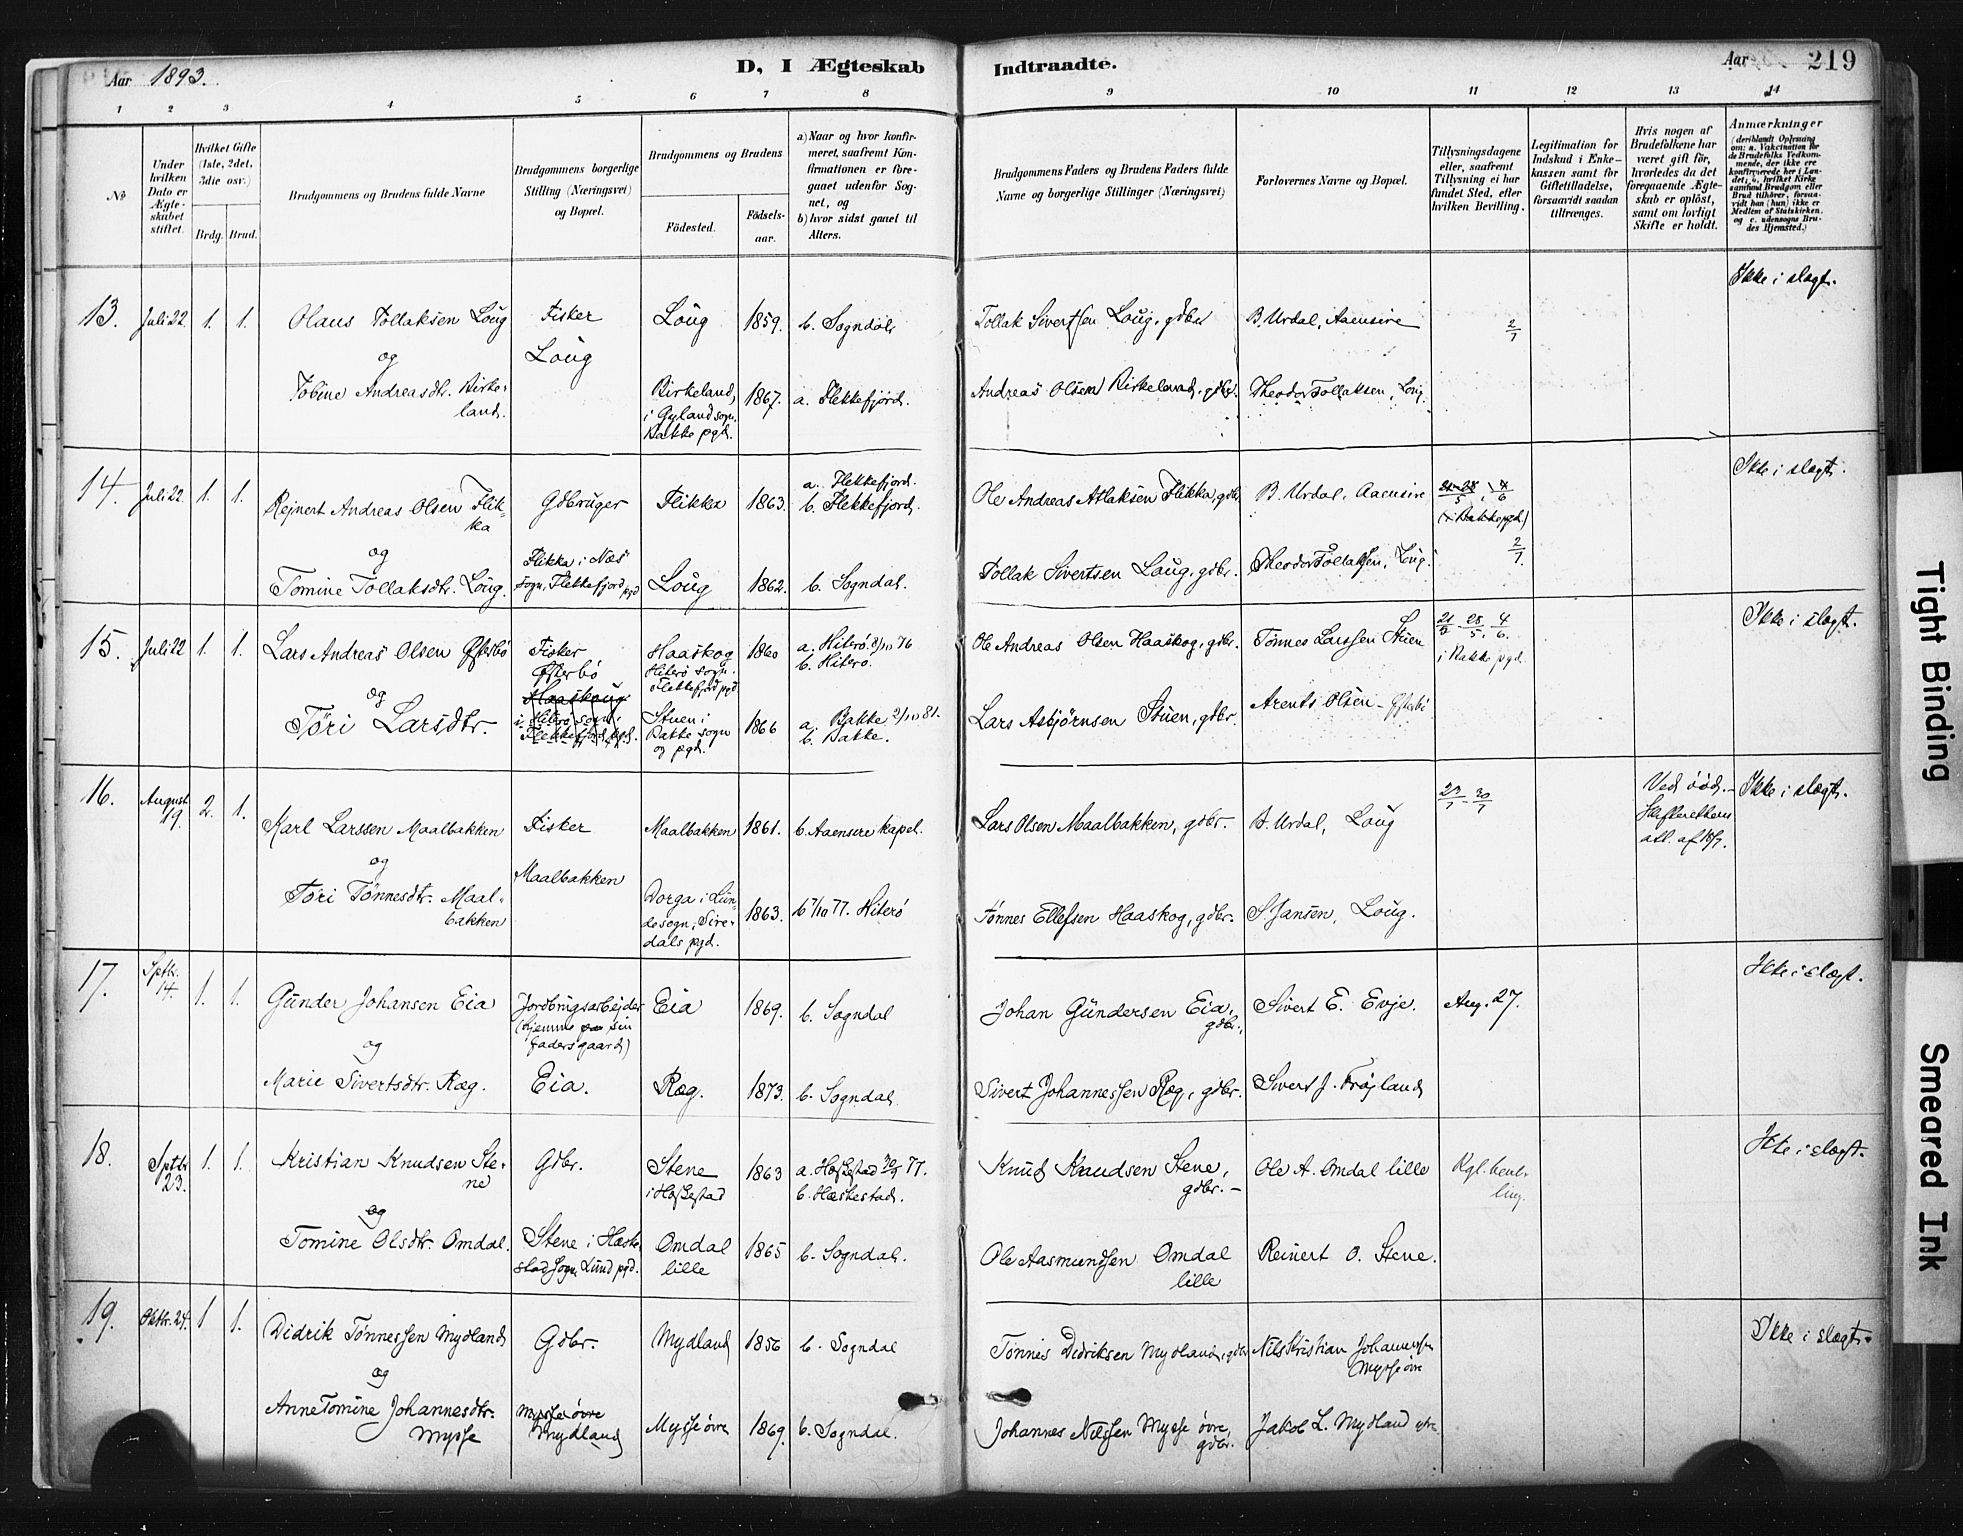 Aar 1893.
D, I Ægteskab Indtraadte.
Aar 219
1 2 3 4 5 6 7 8 9 10 11 12 13 14
No
Under hvilken Dato er Ægteskabet stiftet.
Hvilket Gifte (1ste, 2det, 3die osv.)
Brdg. Brud.
Brudgommens og Brudens fulde Navne
Brudgommens borgerlige Stilling (Næringsvei) og Bopæl.
Brudgommens og Brudens
Fødested.
Fødselsaar.
a) Naar og hvor konfirmeret, saafremt Konfirmationen er foregaaet udenfor Sognet, og
b) hvor sidst gaaet til Alters.
Brudgommens Faders og Brudens Faders fulde Navne og borgerlige Stillinger (Næringsvei)
Forlovernes Navne og Bopæl.
Tillysningsdagene eller, saafremt Tillysning ei har fundet Sted, efter hvilken Bevilling.
Legitimation for Indskud i Enkekassen samt for Giftetilladelse, forsaavidt saadan tiltrænges.
Hvis nogen af Brudefolkene har været gift før, hvorledes da det foregaaende Ægteskab er opløst, samt om lovligt Skifte er holdt.
Anmærkninger
(deriblandt Oplysning om: a. Vakcination for de Brudefolks Vedkommende, der ikke ere konfirmerede her i Landet; b. hvilket Kirkesamfund Brudgom eller Brud tilhører, forsaavidt han (hun) ikke er Medlem af Statskirken, og c. udensogns Brudes Hjemsted.)
13. Juli 22. 1. 1. Olaus Tollaksen Loug Fisker Loug 1859. b. Sogndal. Tollak Sivertsen Loug, gdbr. B. Urdal, Aaensire 2/7 Ikke i slægt.
og Loug
Tobine Andreasdtr. Birkeland. Birkeland, i Gyland sogn, Bakke pgd. 1867. a. Flekkefjord. Andreas Olsen Birkeland, gdbr. Theodor Tollaksen, Loug.
14. Juli 22. 1. 1. Rejnert Andreas Olsen Flikka Gdbruger Flikka 1863. a. Flekkefjord. b. Flekkefjord. Ole Andreas Atlaksen Flikka, gdbr. B. Urdal, Aaensire 21-28/5, 4/6 (i Bakke pgd.) Ikke i slægt.
og Flikka i Næs sogn, Flekkefjord pgd
Tomine Tollaksdtr. Loug. Loug 1862. b. Sogndal. Tollak Sivertsen Loug, gdbr. Theodor Tollaksen, Loug. 2/7
15. Juli 22 1. 1. Lars Andreas Olsen Østebø Fisker Haaskog Hiterø sogn. Flekkefjord pgd. 1860 a. Hiterø 8/10 76 b. Hiterø. Ole Andreas Olsen Haaskog, gdbr. Tønnes Larssen Stuen 21/5 - 28/5, 4/6. i Bakke pgd. Ikke i slægt.
og Haaskoug i Hiterø sogn, Flekkefjord pgd.
Tøri Larsdtr. Stuen i Bakke sogn og pgd. 1866 a. Bakke 2/10 81. b. Bakke. Lars Asbjørnsen Stuen, gdbr. Arents Olsen
16. August 19. 2. 1. Karl Larssen Maalbakken Fisker Maalbakken 1861. b. Aaensire kapel. Lars Olsen Maalbakken, gdbr. B. Urdal, Loug 23/7 - 30/7 Ved død. Skifterettens att. af 18/7. Ikke i slægt.
og Maalbakken
Tøri Tønnesdtr. Maalbakken Dorga i Lunde sogn, Siredals pgd. 1863. 7/10 77. Hiterø Tønnes Ellefsen Haaskog, gdbr. S. Jansen, Loug.
17. Sptbr. 14. 1. 1. Gunder Johansen Eia Jordbrugsarbejder (hjemme paa sin fadersgaard) Eia 1869. b. Sogndal Johan Gundersen Eia, gdbr. Sivert E. Evje. Aug. 27. Ikke i slægt.
og
Marie Sivertsdtr. Ræg. Eia. Ræg. 1873. b. Sogndal. Sivert Johannessen Ræg, gdbr. Sivert J. Frøyland
18. Sptbr 23. 1. 1. Kristian Knudsen Stene Gdbr. Stene i Heskestad 1863 a. Heskestad 30/9 77. b. Hæskestad. Knud Knudsen Stene, gdbr. Ole A. Omdal lille Kgl. bevilling. Ikke i slægt.
og
Tomine Olsdtr. Omdal. Stene i Hæskestad sogn Lund pgd. Omdal lille 1865 b. Sogndal. Ole Aasmundsen Omdal lille Reinert O. Stene.
19. Oktbr. 24. 1 1. Didrik Tønnessen Mydland Gdbr. Mydland 1856 b. Sogndal Tønnes Didriksen Mydland, gdbr Nils Kristian Johannessen Mysse øvre Ikke i slægt.
og
Anne Tomine Johannesdtr. Mysse Mysse øvre Mydland Mysse øvre 1869. b. Sogndal. Johannes Nilssen Mysse øvre, gdbr. Jakob L. Mydland
Tight Binding
Smeared Ink